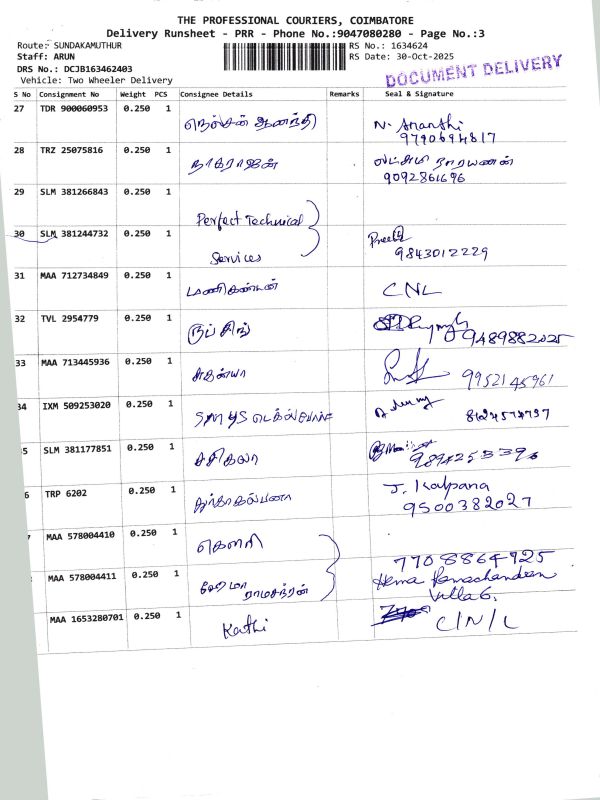 THE PROFESSIONAL COURIERS, COIMBATORE
Delivery Runsheet - PRR - Phone No.:9047080280 - Page No.:3
Route: SUNDAKAMUTHUR RS No.: 1634624
Staff: ARUN RS Date: 30-Oct-2025
DRS No.: DCJB163462403
Vehicle: Two Wheeler Delivery
DOCUMENT DELIVERY
S No Consignment No Weight PCS Consignee Details Remarks Seal & Signature
27 TDR 900060953 0.250 1 நெல்சன் ஆனந்தி N. Ananthi
9790694817
28 TRZ 25075816 0.250 1 நாகராஜன் லட்சுமி நாராயணன்
9092861696
29 SLM 381266843 0.250 1
Perfect Technical
30 SLM 381244732 0.250 1 Preethi
Services 9843012229
31 MAA 712734849 0.250 1 மணிகண்டன் CNL
32 TVL 2954779 0.250 1 ரூப் சிங்
9489882025
33 MAA 713445936 0.250 1 சுகன்யா 9952145961
34 IXM 509253020 0.250 1 SMYS டெக்ஸ்
8124574737
5 SLM 381177851 0.250 1 சசிகலா
9894253396
6 TRP 6202 0.250 1 J. Kalpana
9500382027
MAA 578004410 0.250 1 கௌரி 7708864925
MAA 578004411 0.250 1 ஹேமா Hema Ramachandran
ராமசந்திரன் Villa 6.
MAA 1653280701 0.250 1 Kathi C/N/L